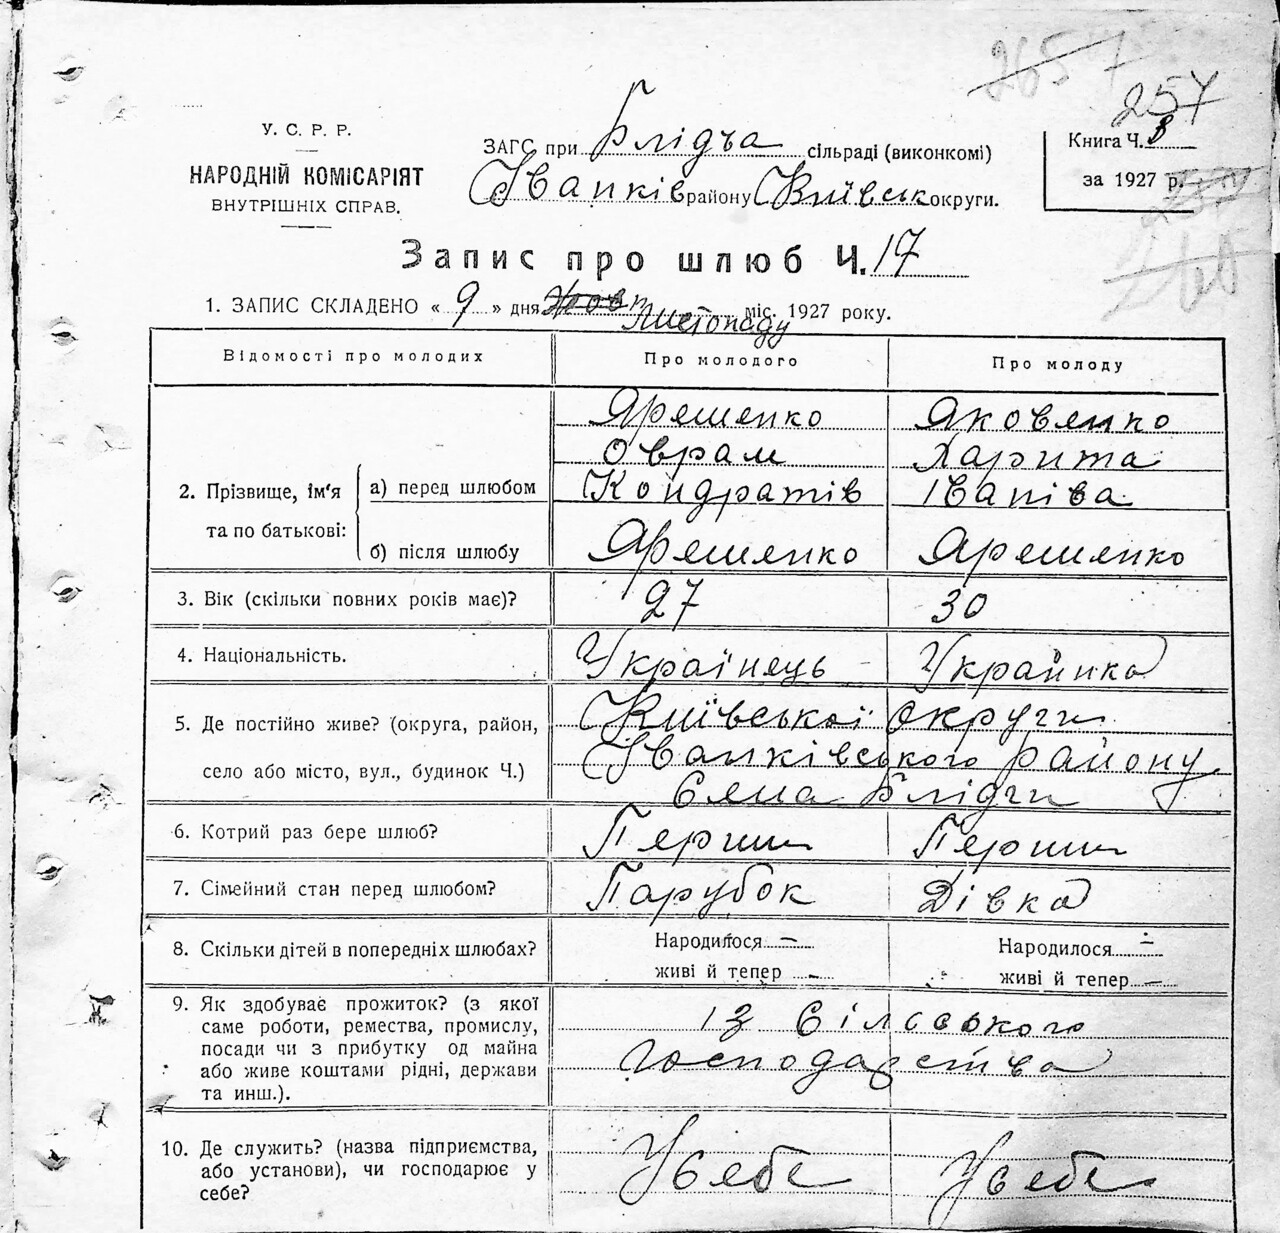 2657
257
У. С. Р. Р.
НАРОДНІЙ КОМІСАРІЯТ
ВНУТРІШНІХ СПРАВ.
ЗАГС при Блідча сільраді (виконкомі)
Іванків району Київськ округи.
Книга Ч. 3
за 1927 р.
Запис про шлюб Ч. 17
1. ЗАПИС СКЛАДЕНО « 9 » дня Жовт міс. 1927 року.
Листопаду
Відомості про молодих Про молодого Про молоду
Ярешенко Яковенко
Оврам Харита
2. Прізвище, ім'я та по батькові: а) перед шлюбом Кондратів Іваніва
б) після шлюбу Ярешенко Ярешенко
3. Вік (скільки повних років має)? 27 30
4. Національність. Українець Українка
5. Де постійно живе? (округа, район, Київської округи
село або місто, вул., будинок Ч.) Іванківського району
Села Блідчи
6. Котрий раз бере шлюб? Перши Перши
7. Сімейний стан перед шлюбом? Парубок Дівка
8. Скільки дітей в попередніх шлюбах? Народилося — Народилося —
живі й тепер — живі й тепер —
9. Як здобуває прожиток? (з якої
саме роботи, ремества, промислу, із Сільського
посади чи з прибутку од майна господарства
або живе коштами рідні, держави
та инш.).
10. Де служить? (назва підприємства,
або установи), чи господарює у У себе У себе
себе?